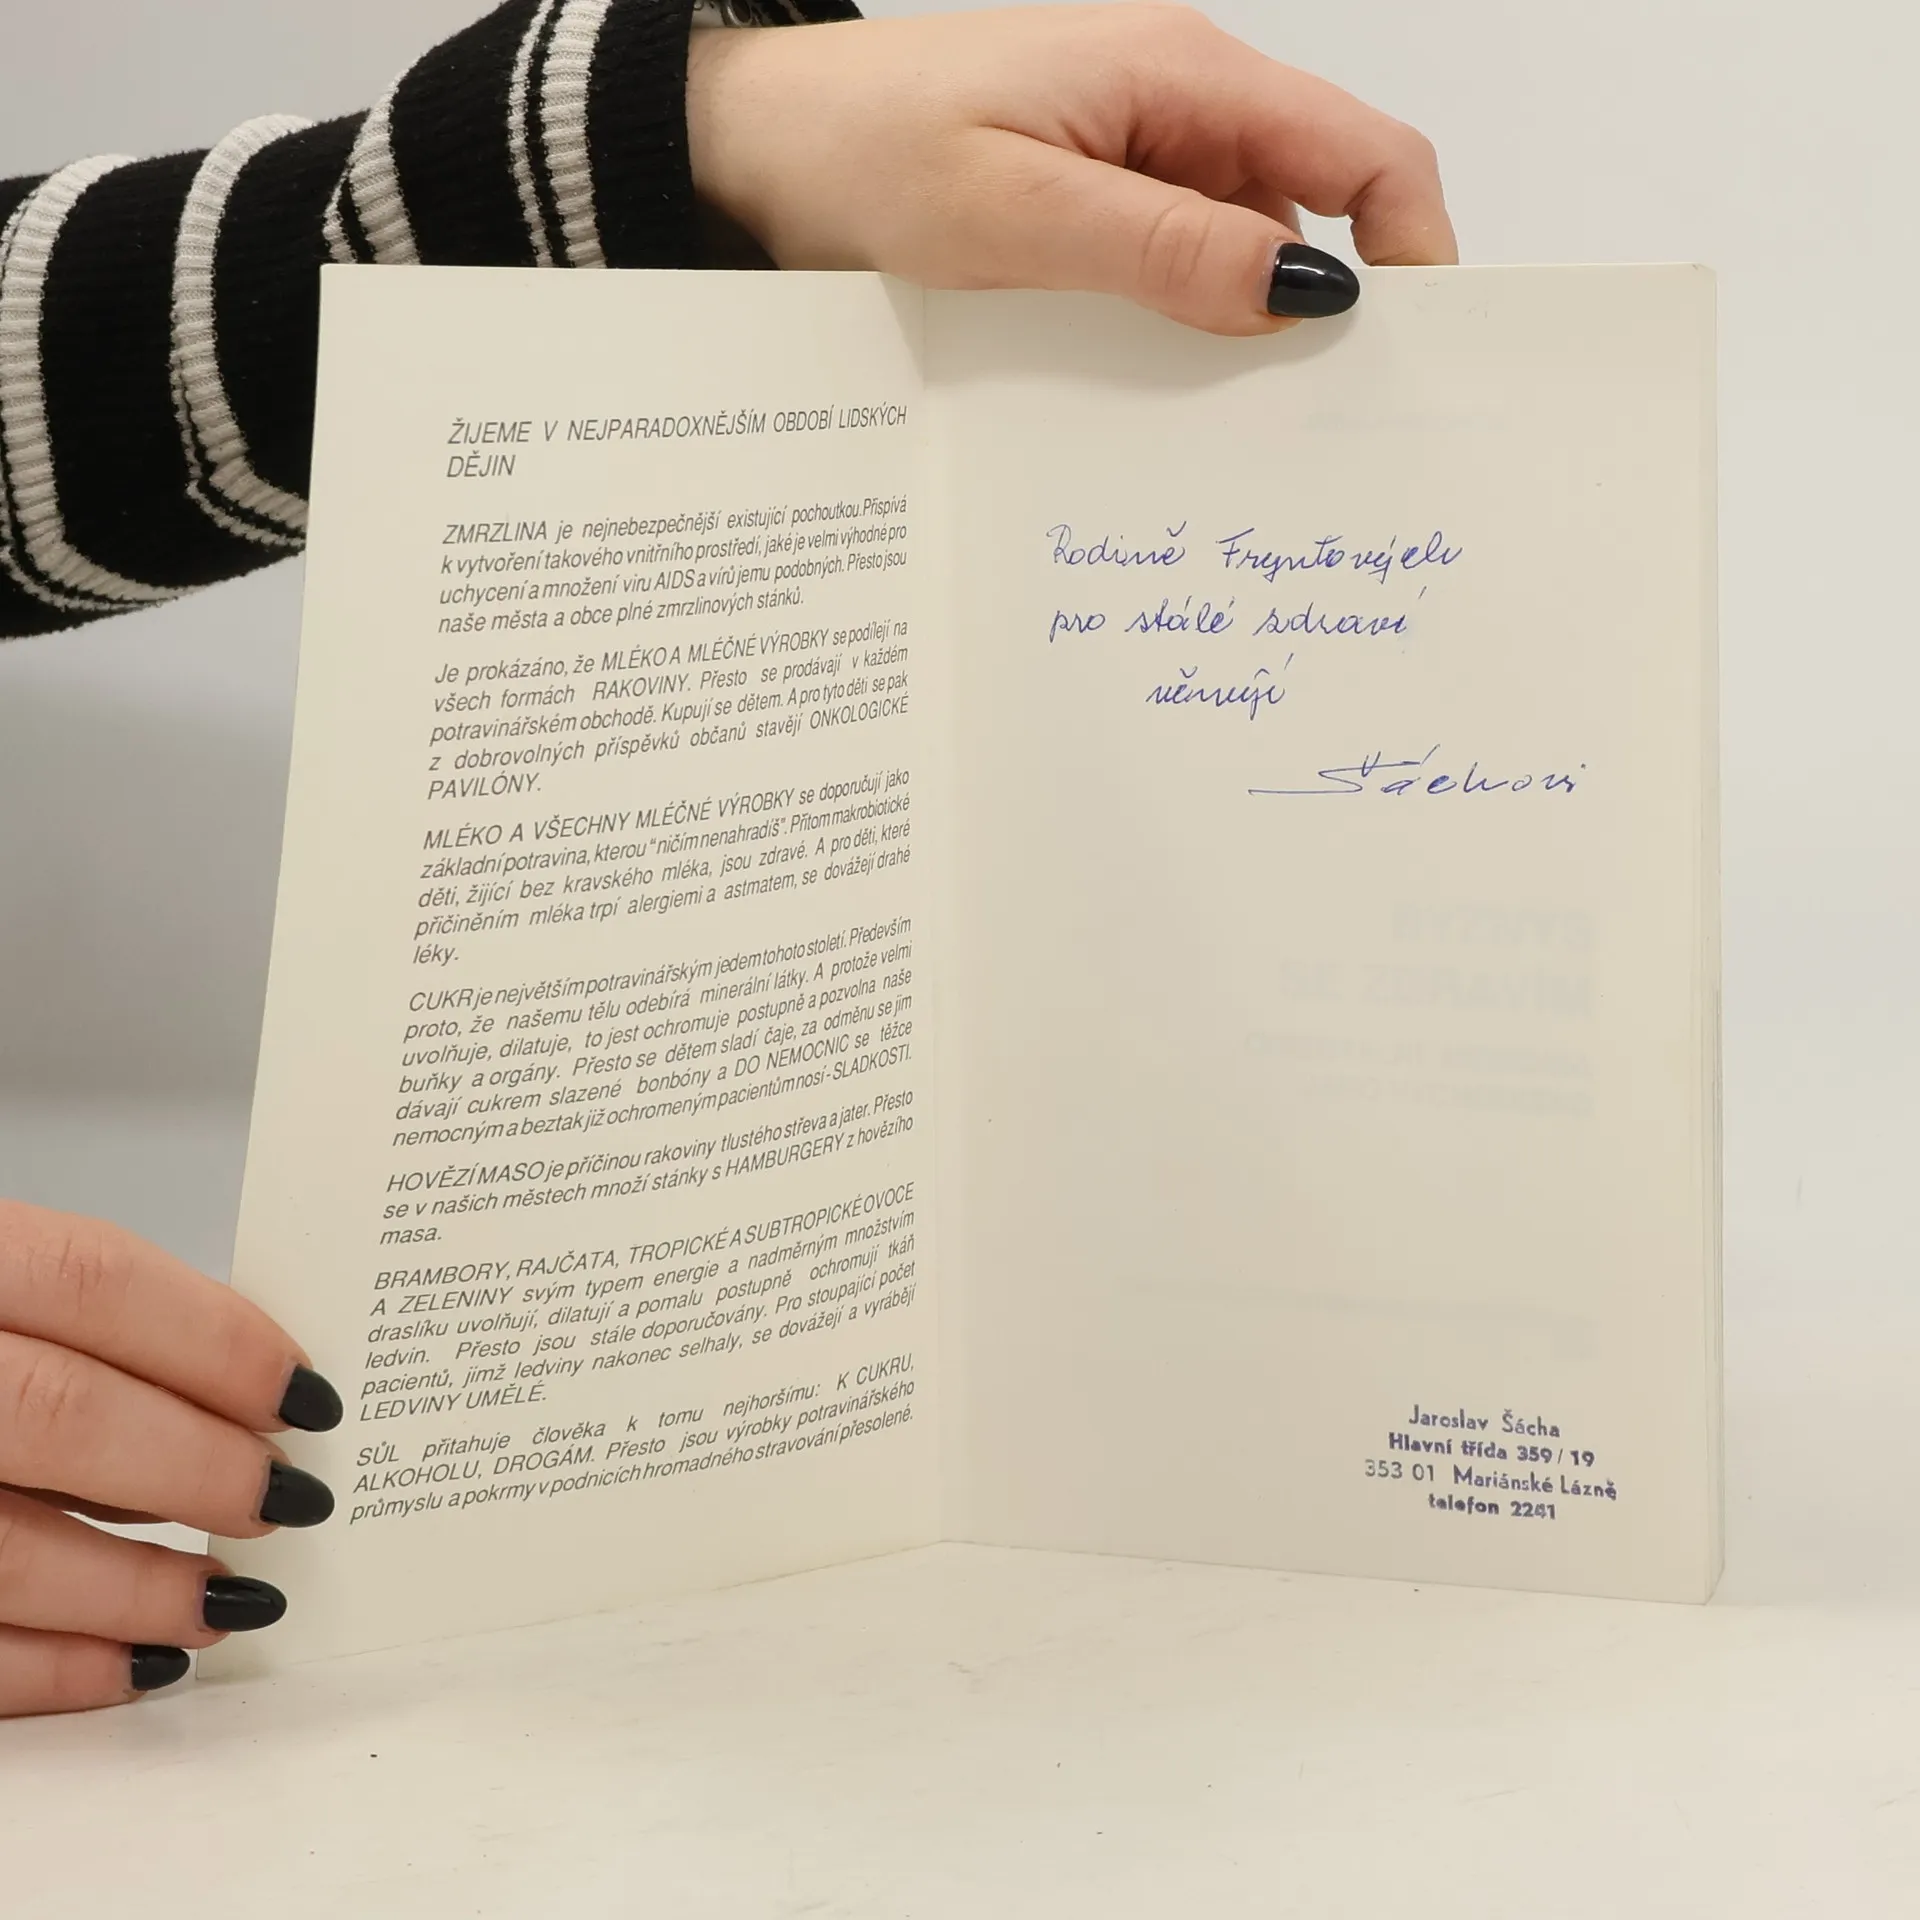 ŽIJEME V NEJPARADOXNĚJŠÍM OBDOBÍ LIDSKÝCH
DĚJIN
ZMRZLINA je nejnebezpečnější existující pochoutkou. Přispívá
k vytvoření takového vnitřního prostředí, jaké je velmi výhodné pro
uchycení a množení viru AIDS a virů jemu podobných. Přesto jsou
naše města a obce plné zmrzlinových stánků.
Je prokázáno, že MLÉKO A MLÉČNÉ VÝROBKY se podílejí na
všech formách RAKOVINY. Přesto se prodávají v každém
potravinářském obchodě. Kupují se dětem. A pro tyto děti se pak
z dobrovolných příspěvků občanů stavějí ONKOLOGICKÉ
PAVILÓNY.
MLÉKO A VŠECHNY MLÉČNÉ VÝROBKY se doporučují jako
základní potravina, kterou "ničím nenahradíš". Přitom makrobiotické
děti, žijící bez kravského mléka, jsou zdravé. A pro děti, které
přičiněním mléka trpí alergiemi a astmatem, se dovážejí drahé
léky.
CUKR je největším potravinářským jedem tohoto století. Především
proto, že našemu tělu odebírá minerální látky. A protože velmi
uvolňuje, dilatuje, to jest ochromuje postupně a pozvolna naše
buňky a orgány. Přesto se dětem sladí čaje, za odměnu se jim
dávají cukrem slazené bonbóny a DO NEMOCNIC se těžce
nemocným a beztak již ochromeným pacientům nosí - SLADKOSTI.
HOVĚZÍ MASO je příčinou rakoviny tlustého střeva a jater. Přesto
se v našich městech množí stánky s HAMBURGERY z hovězího
masa.
BRAMBORY, RAJČATA, TROPICKÉ A SUBTROPICKÉ OVOCE
A ZELENINY svým typem energie a nadměrným množstvím
draslíku uvolňují, dilatují a pomalu postupně ochromují tkáň
ledvin. Přesto jsou stále doporučovány. Pro stoupající počet
pacientů, jimž ledviny nakonec selhaly, se dovážejí a vyrábějí
LEDVINY UMĚLÉ.
SŮL přitahuje člověka k tomu nejhoršímu: K CUKRU,
ALKOHOLU, DROGÁM. Přesto jsou výrobky potravinářského
průmyslu a pokrmy v podnicích hromadného stravování přesolené.
Rodině Fryntových
pro stálé zdraví
věnují
Šáchovi
Jaroslav Šácha
Hlavní třída 359/19
353 01 Mariánské Lázně
telefon 2241